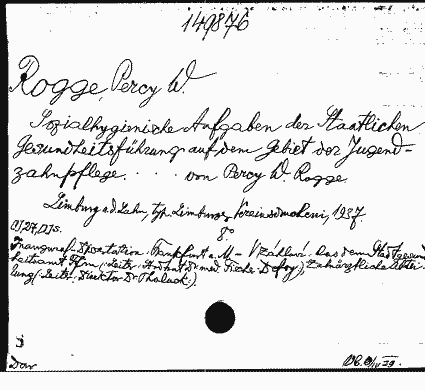 149876
Rogge, Percy W.
Sozialhygienische Aufgaben der Staatlichen
Gesundheitsführung auf dem Gebiet der Jugend-
zahnpflege. . . . von Percy W. Rogge.
Limburg a.d. Lahn, typ. Limburger Vereinsdruckerei, 1937.
8°
Inaugural-Dissertation. Frankfurt a. M. Aus dem Stadtgesund
heitsamt Ffm. (Leiter: Stadtrat Dr. med. Fischer-Defoy), Zahnärztliche Abtei
lung (Leiter: Direktor Dr.